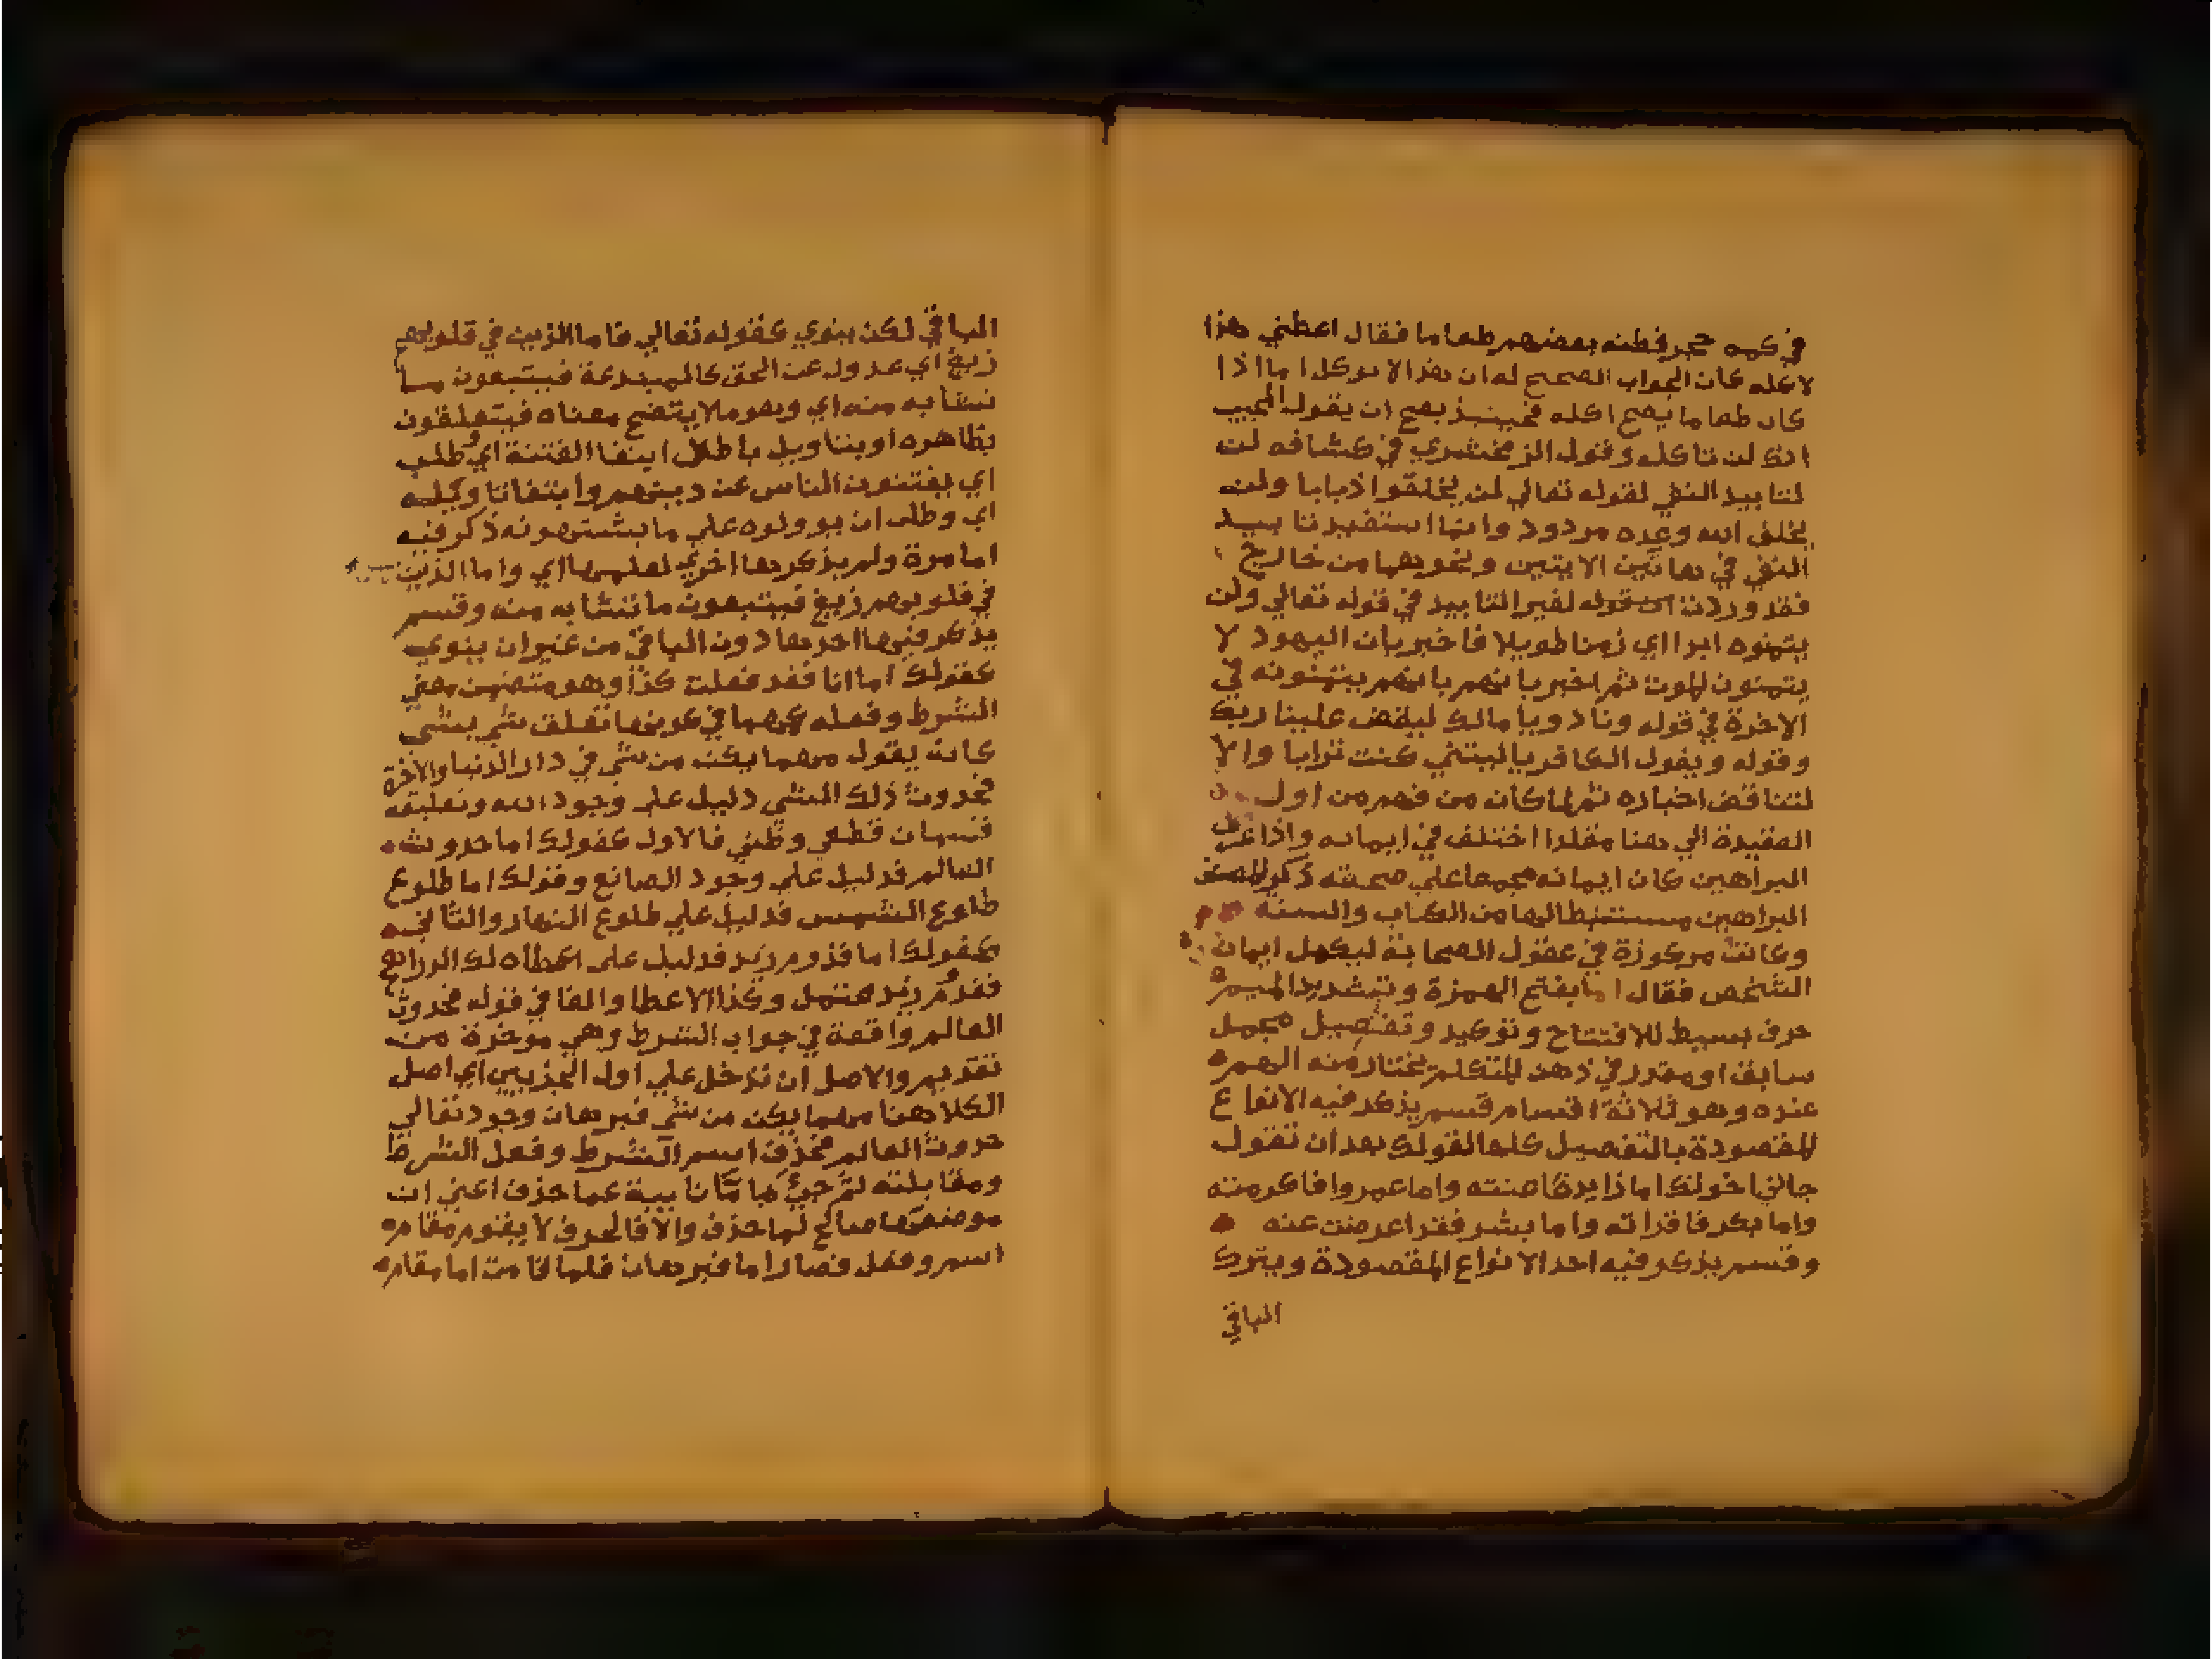 في كمه حجر فظنه بعضهم طعاما فقال اعطني هذا
لاكله كان الجواب الصحيح له ان هذا لا يوكل اما اذا
كان طعاما يصح اكله فحينيذ يصح ان يقول المجيب
انك لن تاكله وقول الزمخشري في كشافه لن
لتابيد النفي لقوله تعالي لن يخلقوا ذبابا ولن
يخلف الله وعده مردود وانما استفيد تابيد
النفي في هاتين الايتين ونحوهما من خارج
فقد وردت لغير التابيد في قوله تعالي ولن
يتمنوه ابدا اي زمنا طويلا فاخبر بان اليهود لا
يتمنون الموت ثم اخبر بانهم بانهم يتمنونه في
الاخرة في قوله ونادوا يا مالك ليقض علينا ربك
وقوله ويقول الكافر يا ليتني كنت ترابا والا
لتناقض اخباره ثم لما كان من فهم من اول
العقيدة الي هنا مقلدا اختلف في ايمانه واذا عرف
البراهين كان ايمانه مجمعا علي صحته ذكر المصنف
البراهين مستنبطا لها من الكتاب والسنة
وكانت مركوزة في عقول الصحابة ليكمل ايمان
الشخص فقال اما بفتح الهمزة وتشديد الميم
حرف بسيط للافتتاح وتوكيد وتفصيل مجمل
سابق او مقدر في ذهن المتكلم يختار منه المهم
عنده وهو ثلاثة اقسام قسم يذكر فيه الانواع
المقصودة بالتفصيل كلها كقولك بعد ان تقول
جاني اخوتك اما زايد فاهنته واما عمرو فاكرمته
واما بكر فاقراته واما بشر فقد اعرضت عنه
وقسم يذكر فيه احد الانواع المقصودة ويترك
الباقي
الباقي لكن ينوي كقوله تعالي فاما الذين في قلوبهم
زيغ اي عدول عن الحق كالمبتدعة فيتبعون ما
تشابه منه اي وهو ما لا يتضح معناه فيتعلقون
بظاهره او بتاويل باطل ابتغا الفتنة اي طلب
اي يفتنون الناس عن دينهم وابتغا تاويله
اي وطلب ان يوولوه علي ما يشتهونه ذكر فيه
اما مرة ولم يذكرها اخري لعلمها اي واما الذين
في قلوبهم زيغ فيتبعون ما تشابه منه وقسم
يذكر فيها احدها دون الباقي من غير ان ينوي
كقولك اما انا فقد فعلت كذا وهو متضمن معني
الشرط وفعله كمهما في كونها تعلق شي بشي
كانه يقول مهما يكن من شي في دار الدنيا والاخرة
فحدوث ذلك الشي دليل علي وجود الله وتعليقه
قسمان قطعي وظني فالاول كقولك اما حدوث
العالم فدليل علي وجود الصانع وقولك اما طلوع
طلوع الشمس فدليل علي طلوع النهار والثاني
كقولك اما قدوم زيد فدليل علي اعطاه لك الدراهم
فقدوم زيد محتمل وكذا الاعطا والفا في قوله فحدوث
العالم واقعة في جواب الشرط وهي موخرة من
تقديم والاصل ان تدخل علي اول الجزيين اي اصل
الكلا هنا مهما يكن من شي فبرهان وجوده تعالي
حدوث العالم فحذف اسم الشرط وفعل الشرط
ومقابلته ثم جي باما نايبة عما حذف اعني ان
موضعها صالح لها حذف والا فالحرف لا يقوم مقام
اسم وفعل فصار اما فبرهان فلما قامت اما مقام